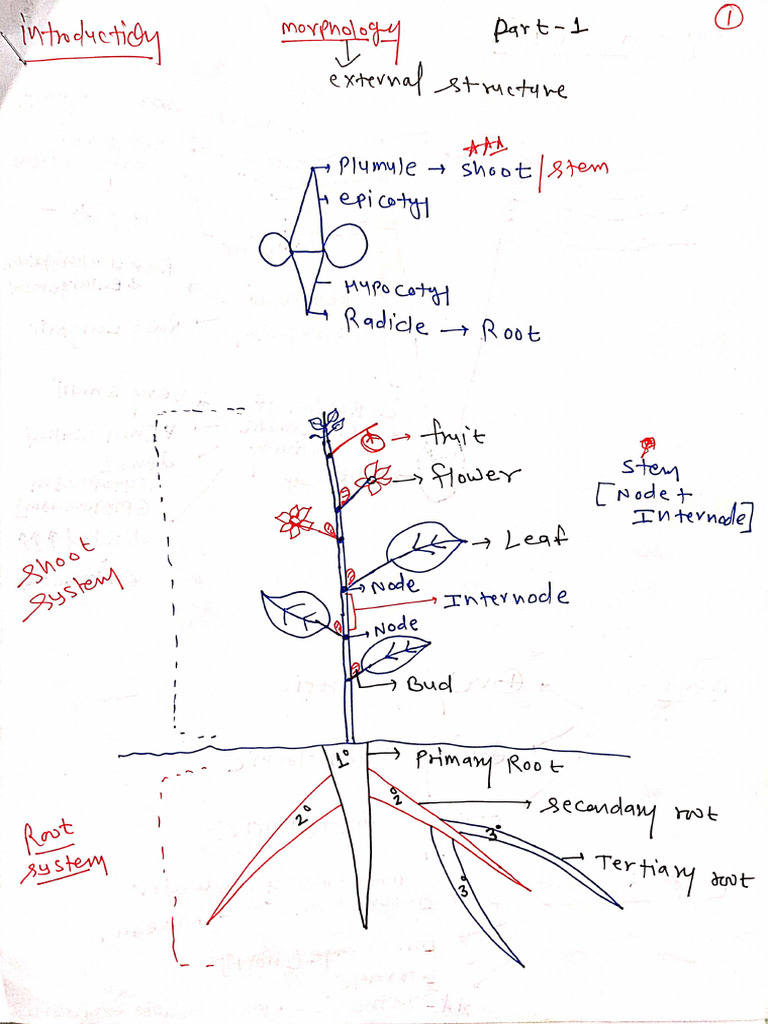 introduction morphology Part-1 1
external structure
Plumule → shoot/stem
epicotyl
Hypocotyl
Radicle → Root
fruit
flower
stem
[Node +
Internode]
Leaf
shoot
system
Node
Internode
Node
Bud
1° Primary Root
2° 2° secondary root
3°
Root
system
Tertiary root
3°